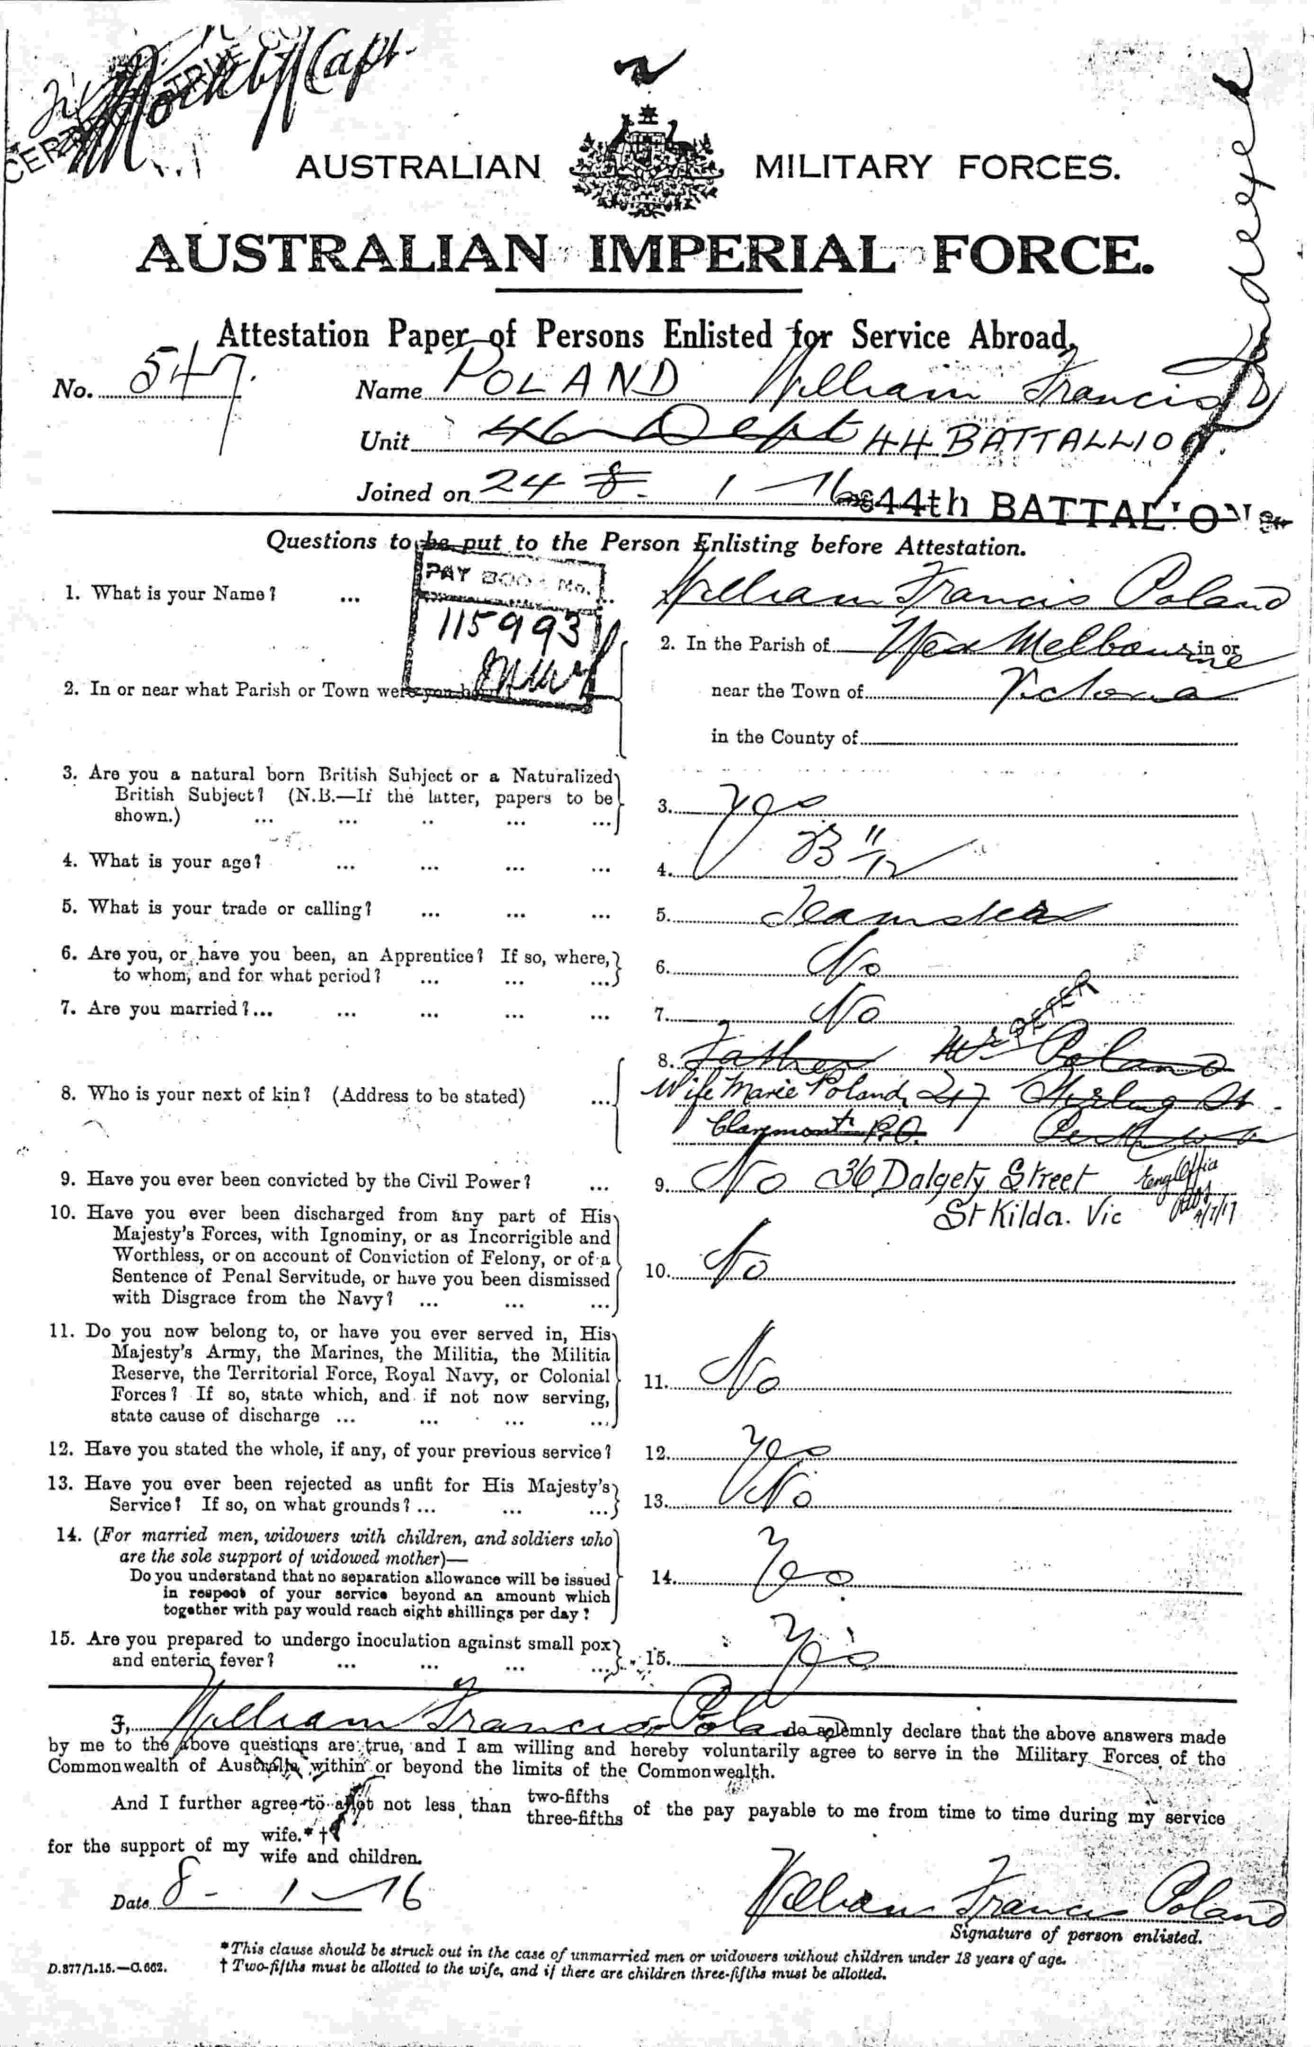 CERTIFIED TRUE COPY
Capt.
AUSTRALIAN MILITARY FORCES.
AUSTRALIAN IMPERIAL FORCE.
Indexed
Attestation Paper of Persons Enlisted for Service Abroad.
No. 547. Name POLAND William Francis
Unit 46 Dept 44 BATTALLION
Joined on 24 8. 1 - 16 44th BATTAL'ON
Questions to be put to the Person Enlisting before Attestation.
PAY BOOK No.
115993
1. What is your Name? ... William Francis Poland
2. In or near what Parish or Town were you born
2. In the Parish of West Melbourne in or
near the Town of Victoria
in the County of
3. Are you a natural born British Subject or a Naturalized
British Subject? (N.B.—If the latter, papers to be
shown.) ... ... .. ... ...
3. Yes
4. What is your age? ... ... ... ... 4. 23 11/12
5. What is your trade or calling? ... ... ... 5. Teamster
6. Are you, or have you been, an Apprentice? If so, where,
to whom, and for what period? ... ... ...
6. No
7. Are you married?... ... ... ... ... 7. No
8. Who is your next of kin? (Address to be stated) ...
8. Father Mr PETER Poland
Wife Marie Poland, 247 Stirling St
Claremont P.O. Perth
9. Have you ever been convicted by the Civil Power? ... 9. No
36 Dalgety Street
St Kilda. Vic
4/7/17
10. Have you ever been discharged from any part of His
Majesty's Forces, with Ignominy, or as Incorrigible and
Worthless, or on account of Conviction of Felony, or of a
Sentence of Penal Servitude, or have you been dismissed
with Disgrace from the Navy? ... ... ...
10. No
11. Do you now belong to, or have you ever served in, His
Majesty's Army, the Marines, the Militia, the Militia
Reserve, the Territorial Force, Royal Navy, or Colonial
Forces? If so, state which, and if not now serving,
state cause of discharge ... ... ... ...
11. No
12. Have you stated the whole, if any, of your previous service? 12. Yes
13. Have you ever been rejected as unfit for His Majesty's
Service? If so, on what grounds? ... ... ...
13. No
14. (For married men, widowers with children, and soldiers who
are the sole support of widowed mother)—
Do you understand that no separation allowance will be issued
in respect of your service beyond an amount which
together with pay would reach eight shillings per day?
14. Yes
15. Are you prepared to undergo inoculation against small pox
and enteric fever? ... ... ... ...
15. Yes
I, William Francis Poland do solemnly declare that the above answers made
by me to the above questions are true, and I am willing and hereby voluntarily agree to serve in the Military Forces of the
Commonwealth of Australia within or beyond the limits of the Commonwealth.
And I further agree to allot not less than two-fifths
three-fifths of the pay payable to me from time to time during my service
for the support of my wife.*†
wife and children.
Date 8 - 1 - 16
William Francis Poland
Signature of person enlisted.
*This clause should be struck out in the case of unmarried men or widowers without children under 18 years of age.
D.877/1.15.—C.662. † Two-fifths must be allotted to the wife, and if there are children three-fifths must be allotted.